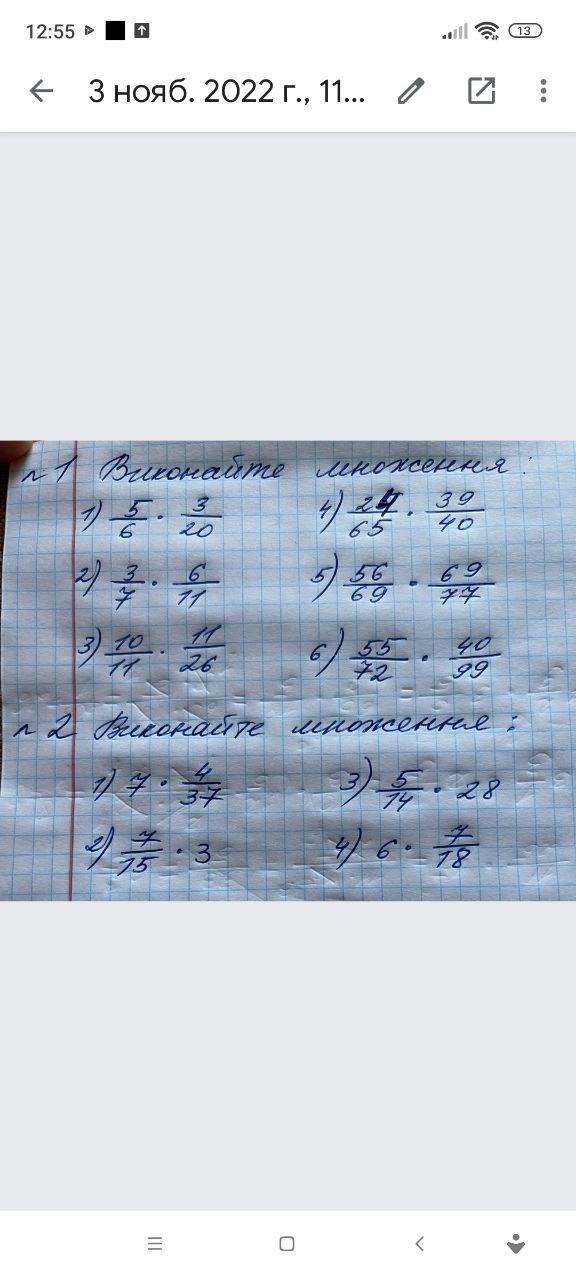 12:55 13
3 нояб. 2022 г., 11...
№1 Виконайте множення:
1) 5/6 · 3/20 4) 24/65 · 39/40
2) 3/7 · 6/11 5) 56/69 · 69/77
3) 10/11 · 11/26 6) 55/72 · 40/99
№2 Виконайте множення:
1) 7 · 4/37 3) 5/14 · 28
2) 7/15 · 3 4) 6 · 7/18